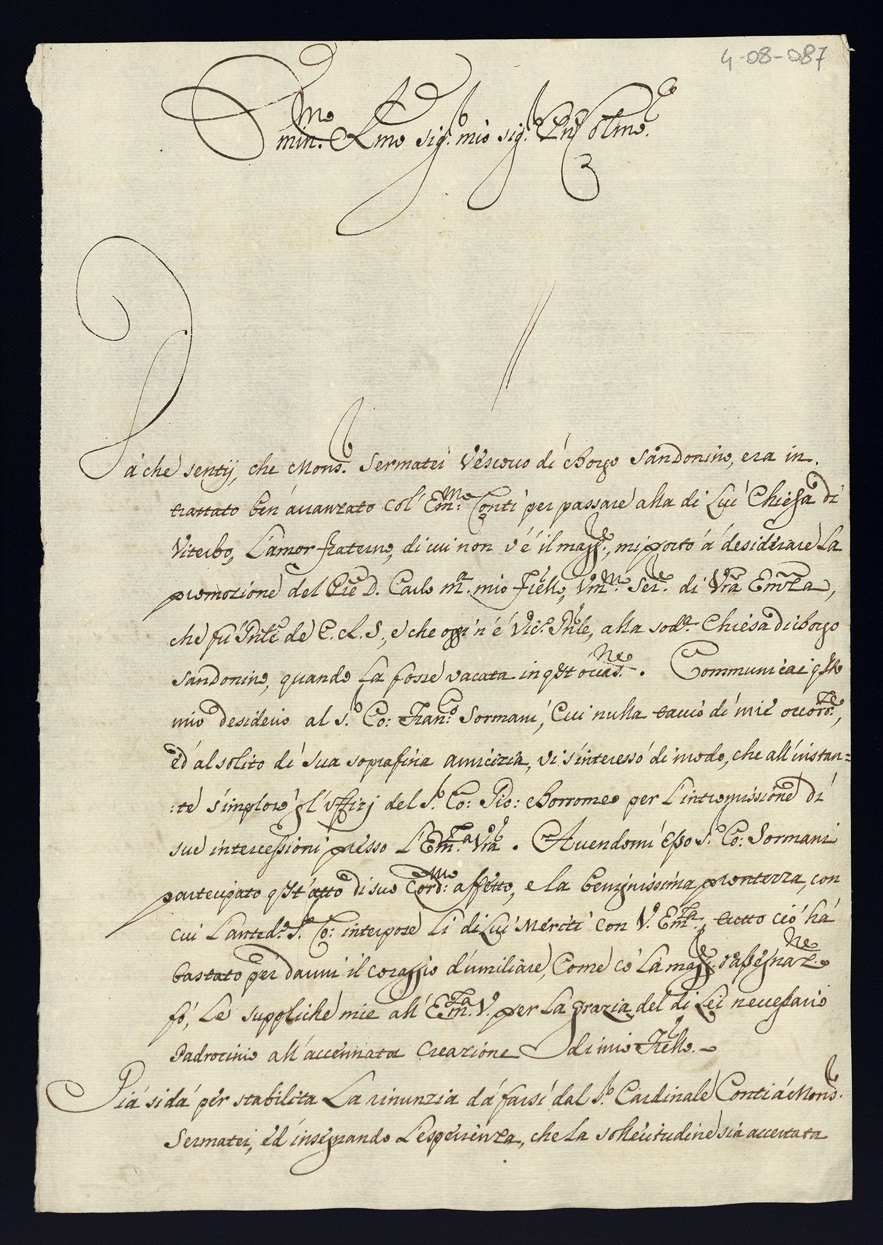 4-08-087
Emin.mo e Rmo sig.r mio sig.r Pn Colmo.
Da che sentij, che Mons.r Sermatei Vescovo di Borgo Sandonino, era in
trattato ben avanzato col' Em.mo Conti per passare alla di Lui Chiesa di
Viterbo, L'amor fraterno, di cui non v'è il magg.re, mi portò á desiderare La
promozione del Pre D. Carlo M.a mio Frello, Um.mo Ser.e di Vra Emza,
che fú Pnte de C. R. S., e che oggi n'è Vic. Gnle, alla sod.a Chiesa di borgo
Sandonino, quando La fosse vacata in qst occas.ne. Communicai qsto
mio desiderio al S.r Co: Fran.co Sormani, Cui nulla taccio di mie occorr.ze,
ed al solito di sua soprafina amicizia, vi s'interessó di modo, che all'instan=
:te s'implorò gl'uffizj del S.r Co: Gio: Borromeo per L'intromissione di
sue intercessioni presso L'Em.za Vra. Avendomi esso S.r Co: Sormani
partecipato qst atto di suo Cord.mo affetto, e la benignissima prontezza, con
cui L'anted.o S.r Co: interpose li di Lui Meriti con V. Em.za, tutto ciò há
bastato per darmi il coraggio d'umiliare, Come có La magg.r rassegnaz.ne
fó, Le suppliche mie all'Em.za V. per La grazia del di Lei necessario
Padrocinio all'accennata Creazione di mio Frello.
Giá si dá per stabilita La rinunzia dá farsi dal S.r Cardinale Conti á Mons.r
Sermatei, ed insegnando L'esperienza, che La sollecitudine sia accertata